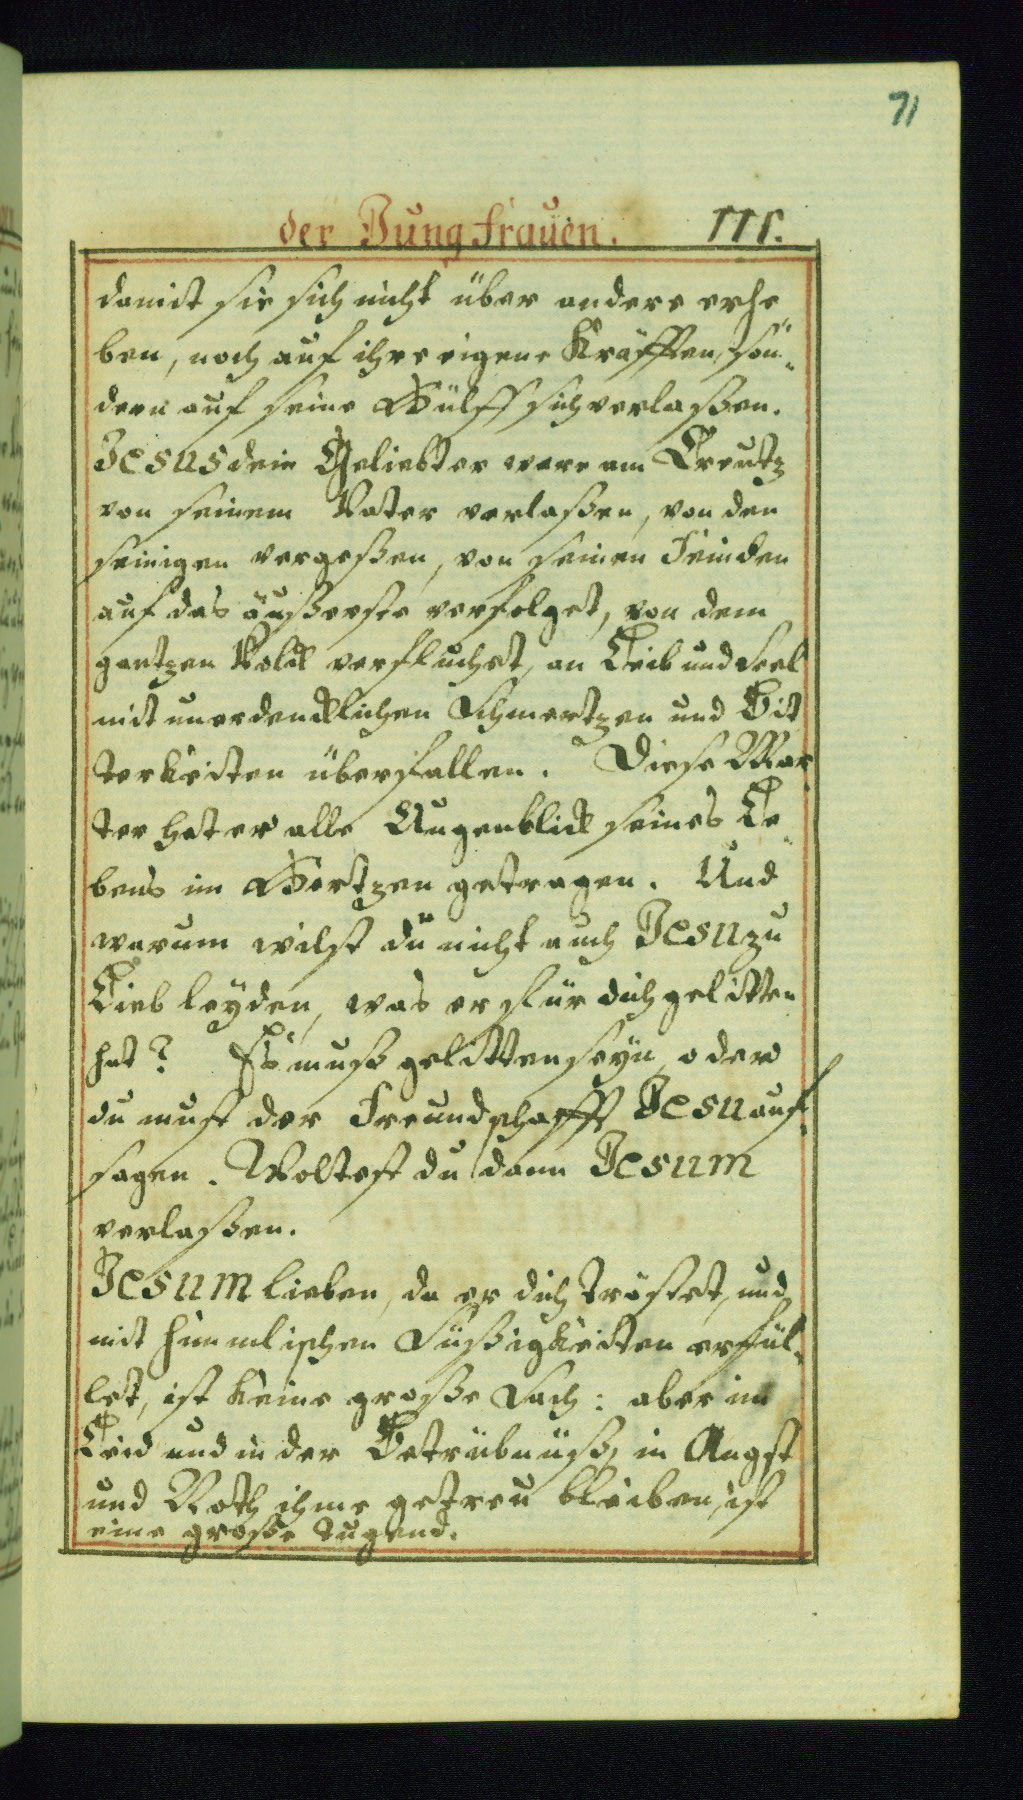 71
der Jungfrauen. 111.
damit sie sich nicht über andere erhe
ben, noch auf ihre eigene Kräfften, son=
dern auf seine Hülff sich verlaßen.
Jesus dein Geliebter ware am Creutz
von seinem Vater verlaßen, von den
seinigen vergeßen, von seinen Feinden
auf das äußerste verfolget, von dem
gantzen Volck verfluchet, an Leib und Seel
mit unerdencklichen Schmertzen und Bit
terkeiten überfallen. Diese Mar
ter hat er alle Augenblick seines Le=
bens im Hertzen getragen. Und
warum wilst du nicht auch Jesu zu
Lieb leyden, was er für dich gelitten
hat? Es muß gelitten seyn, oder
du must der Freundschafft Jesu auf=
sagen. Woltest du dann Jesum
verlaßen.
Jesum lieben, da er dich tröstet, und
mit himmlischen Süßigkeiten erfül=
let, ist keine große Sach: aber im
Leid und in der Betrübnüß, in Angst
und Noth ihme getreu bleiben, ist
eine große Tugend.